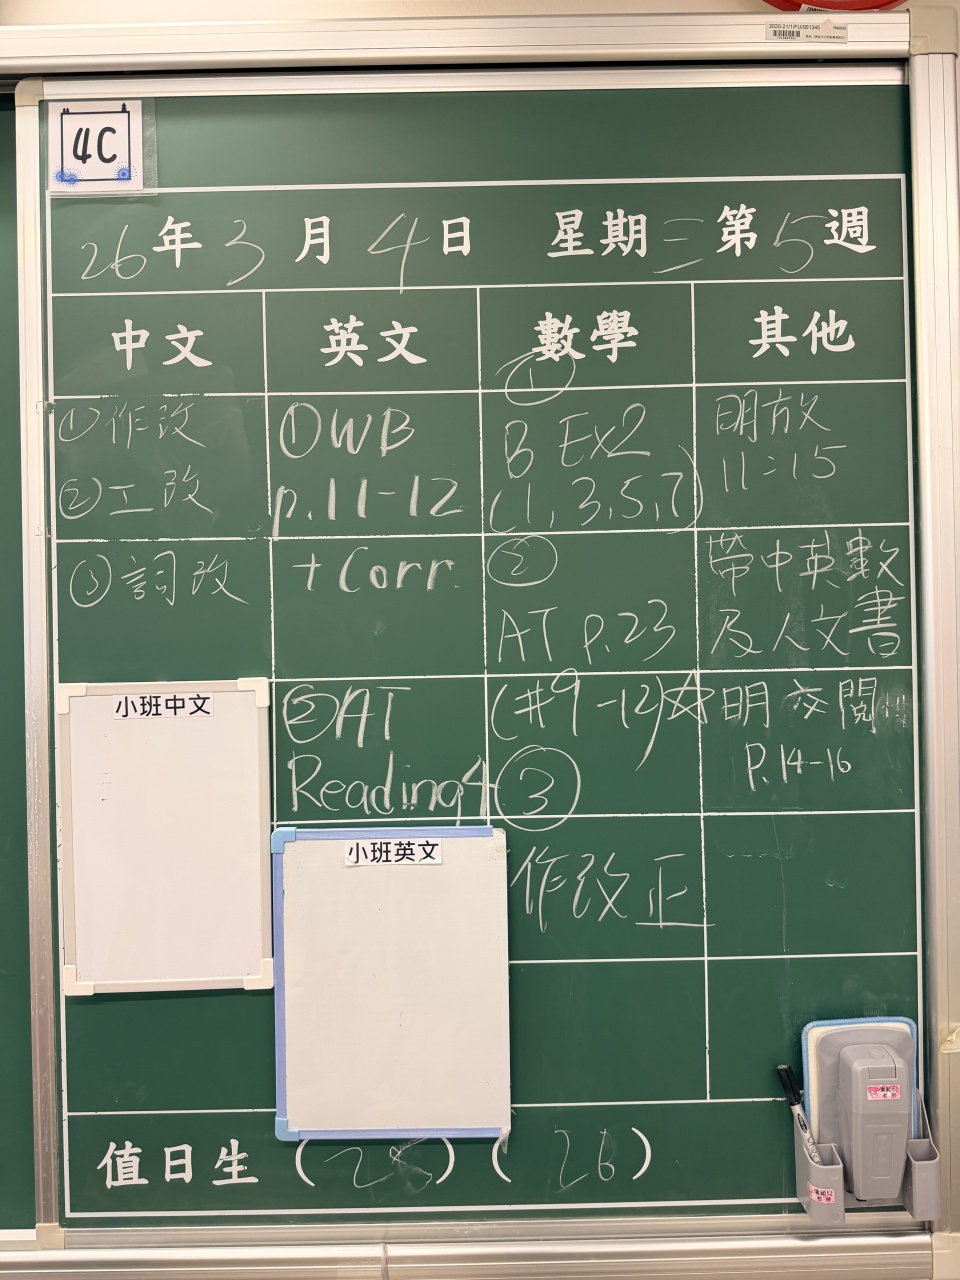 2020-21/1/FU/001345
4C
26年3月4日 星期三第5週
中文 英文 數學 其他
①作改
②工改
③詞改
小班中文
①WB
p.11-12
+Corr.
②AT
Reading4
小班英文
①
B Ex2
(1, 3, 5, 7)
②
AT p.23
(#9-12)☆
③
作改正
明放
11:15
帶中英數
及人文書
明交閱
P.14-16
值日生 (25) (26)